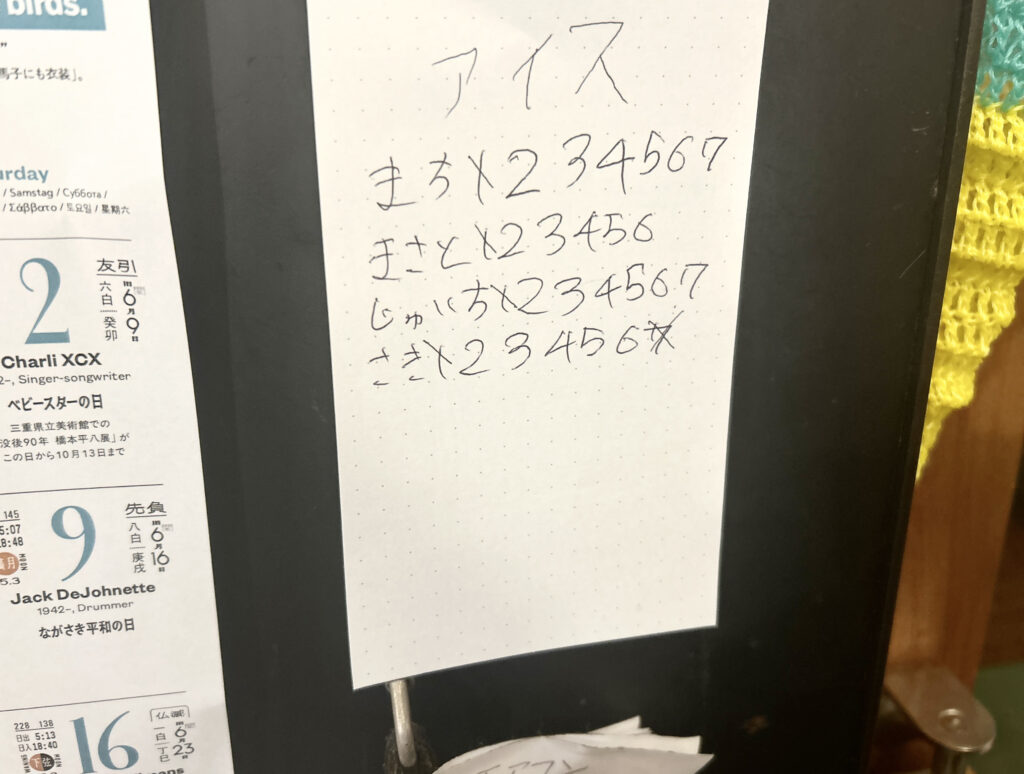 birds.
馬子にも衣装」。
urday
/ Samstag / Суббота /
/ Σάββατο / 토요일 / 星期六
2
友引
六白
癸卯
旧6月9日
Charli XCX
2–, Singer-songwriter
ベビースターの日
三重県立美術館での
没後90年 橋本平八展」が
この日から10月13日まで
145
5:07
18:48
満月
MOON
5.3
9
先負
八白
庚戌
旧6月16日
Jack DeJohnette
1942–, Drummer
ながさき平和の日
228 138
日出 5:13
日入18:40
下弦
MOON
16
仏滅
一白
丁巳
旧6月23日
アイス
まち X 2 3 4 5 6 7
まさと X 2 3 4 5 6
じゅいち X 2 3 4 5 6 7
さき X 2 3 4 5 6